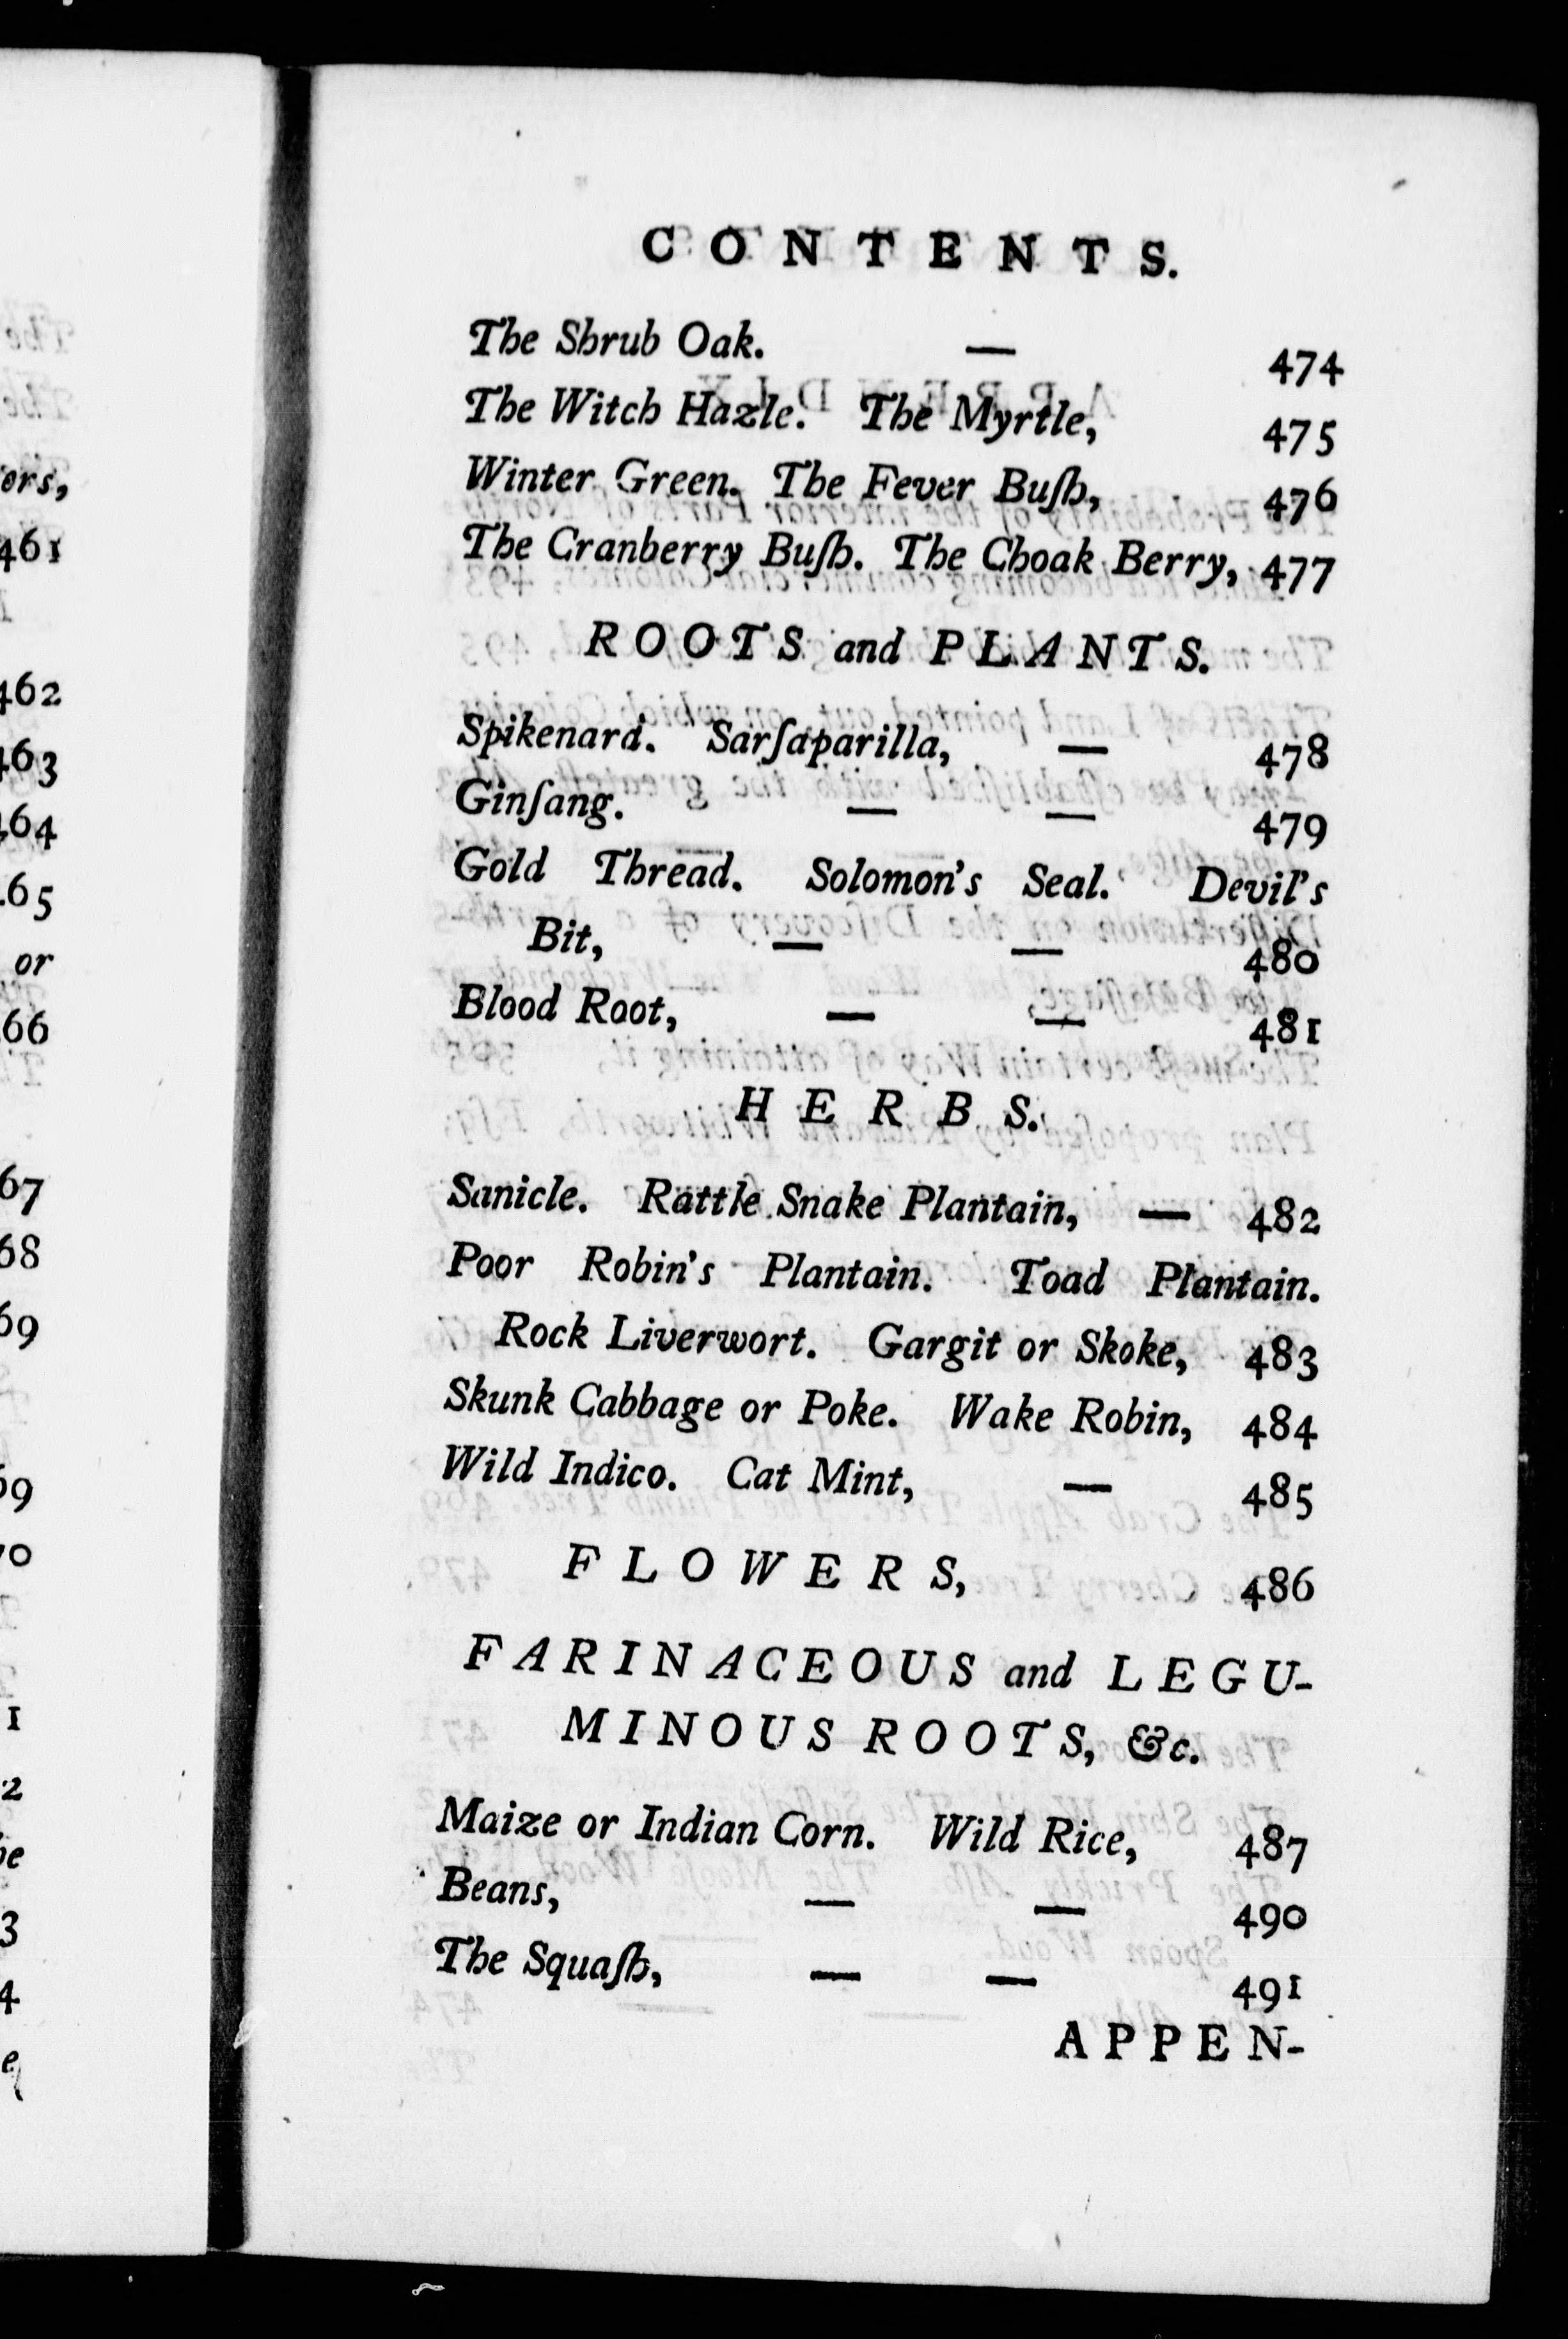 CONTENTS.
The Shrub Oak. — 474
The Witch Hazle. The Myrtle, 475
Winter Green. The Fever Buſh, 476
The Cranberry Buſh. The Choak Berry, 477
ROOTS and PLANTS.
Spikenard. Sarſaparilla, — 478
Ginſang. — — 479
Gold Thread. Solomon's Seal. Devil's
Bit, — — 480
Blood Root, — — 481
HERBS.
Sanicle. Rattle Snake Plantain, — 482
Poor Robin's Plantain. Toad Plantain.
Rock Liverwort. Gargit or Skoke, 483
Skunk Cabbage or Poke. Wake Robin, 484
Wild Indico. Cat Mint, — 485
FLOWERS, 486
FARINACEOUS and LEGU-
MINOUS ROOTS, &c.
Maize or Indian Corn. Wild Rice, 487
Beans, — — 490
The Squaſh, — — 491
APPEN-